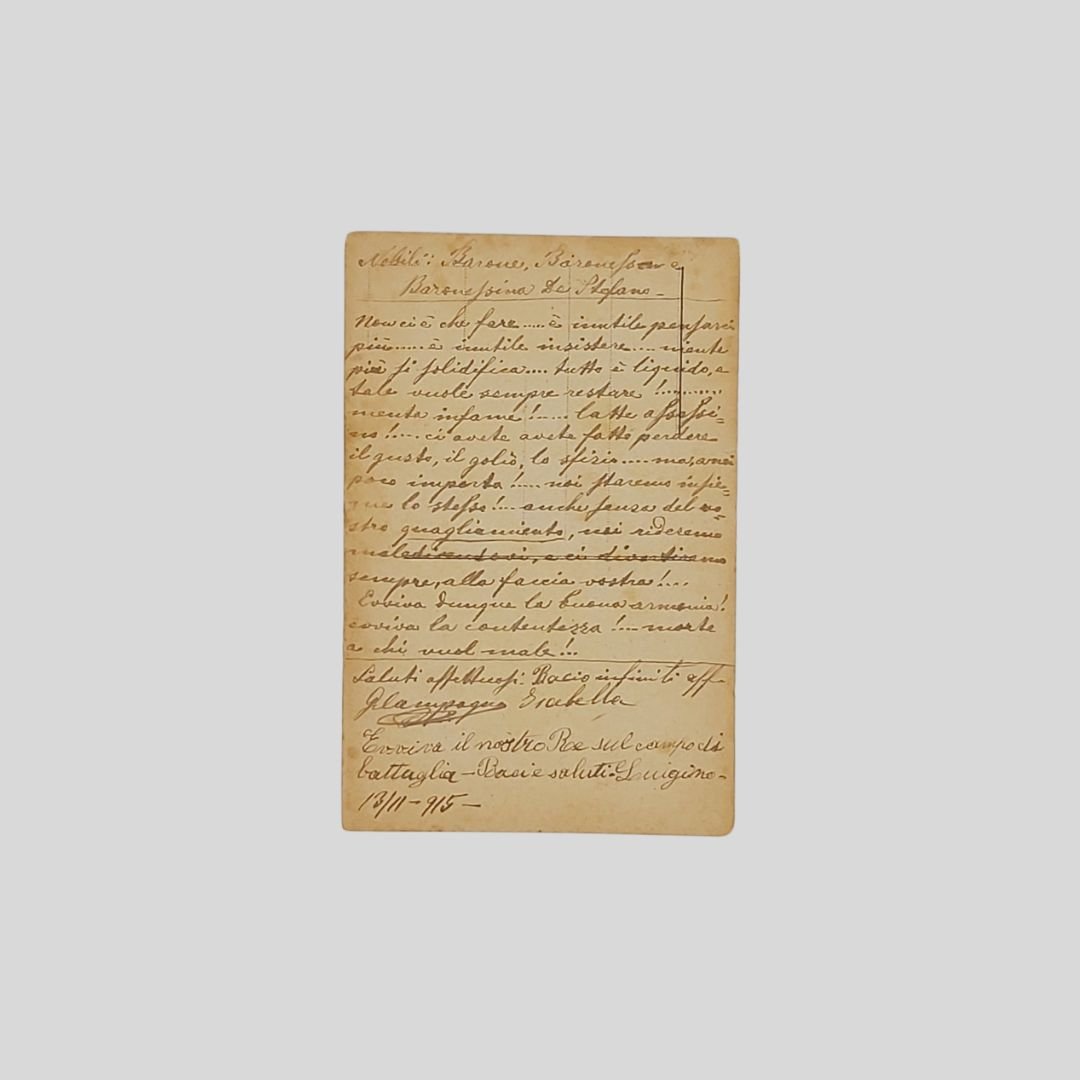 Nobili: Barone, Baronessa e
Baronessina De Stefano -
Non ci è che fare..... è inutile pensarci
più..... è inutile insistere.... niente
più si solidifica.... tutto è liquido, e
tale vuole sempre restare !.........
menta infame !..... latte assassi=
no !.... ci avete avete fatto perdere
il gusto, il golio, lo sfizio....
poco importa !.... noi staremo insie=
me lo stesso !... anche senza del vo=
stro quagliamiento, noi rideremo
maledicendovi, e ci divertiremo
sempre, alla faccia vostra !...
Evviva dunque la buona armonia !
evviva la contentezza !... morte
a chi vuol male !...
Saluti affettuosi. Bacio infiniti aff.
Isabella
Evviva il nostro Re sul campo di
battaglia - Baci e saluti. Luigino -
13/11 - 915 -